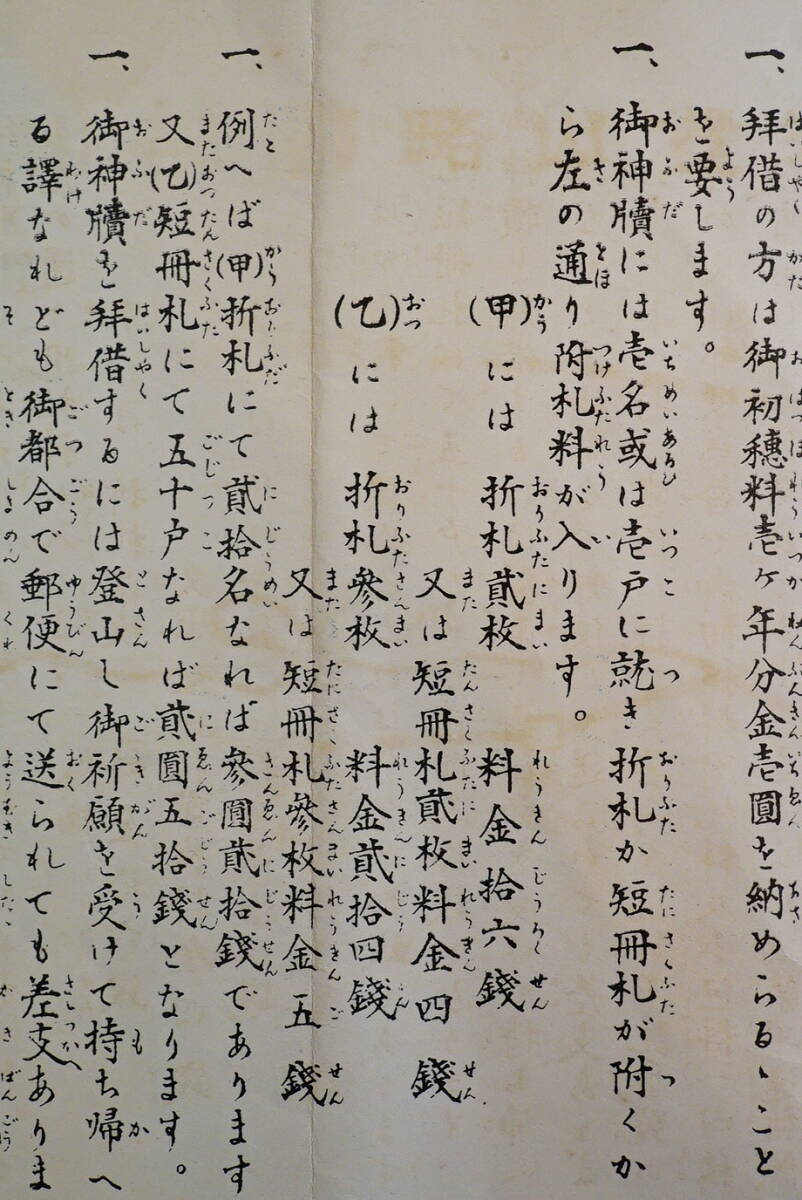 一、拝借の方は御初穗料壱ヶ年分金壱圓を納めらるゝこと
を要します。
一、御神牘には壱名或は壱戸に就き折札か短冊札が附くか
ら左の通り附札料が入ります。
(甲)には 折札貳枚 料金拾六錢
又は短冊札貳枚料金四錢
(乙)には 折札參枚 料金貳拾四錢
又は短冊札參枚料金五錢
一、例へば(甲)折札にて貳拾名なれば參圓貳拾錢であります
又(乙)短冊札にて五十戸なれば貳圓五拾錢となります。
一、御神牘を拝借するには登山し御祈願を受けて持ち帰へ
る譯なれども御都合で郵便にて送られても差支ありま